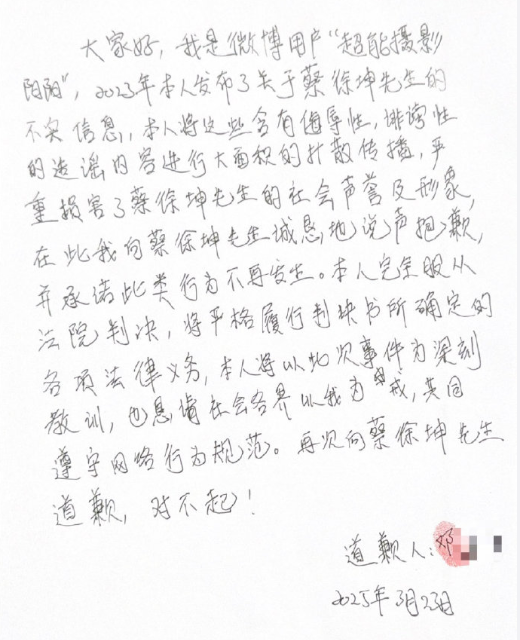 大家好，我是微博用户“超能摄影
阳阳”，2023年本人发布了关于蔡徐坤先生的
不实信息，本人将这些含有侮辱性，诽谤性
的造谣内容进行大面积的扩散传播，严
重损害了蔡徐坤先生的社会声誉及形象，
在此我向蔡徐坤先生诚恳地说声抱歉，
并承诺此类行为不再发生。本人完全服从
法院判决，将严格履行判决书所确定的
各项法律义务，本人将以此次事件为深刻
教训，也恳请社会各界以我为戒，共同
遵守网络行为规范。再次向蔡徐坤先生
道歉，对不起！
道歉人：邓
2025年3月23日